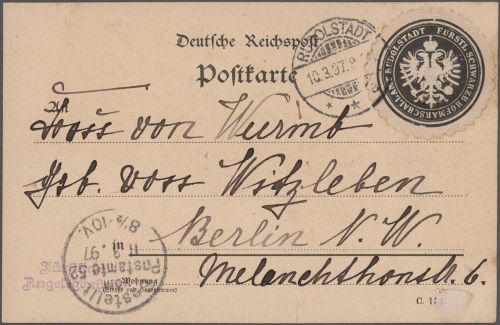 Deutsche Reichspost
Postkarte
RUDOLSTADT
10.3.97.8
FÜRSTL. SCHWARZB. HOFMARSCHALLAMT RUDOLSTADT
von Wurmb
geb. von Witzleben
in
Berlin N. W.
Wohnung
(Straße und Hausnummer)
Melanchthonstr. 6.
Bestellt
Postamte 52
11.3.97
8½-10V.
C. 154